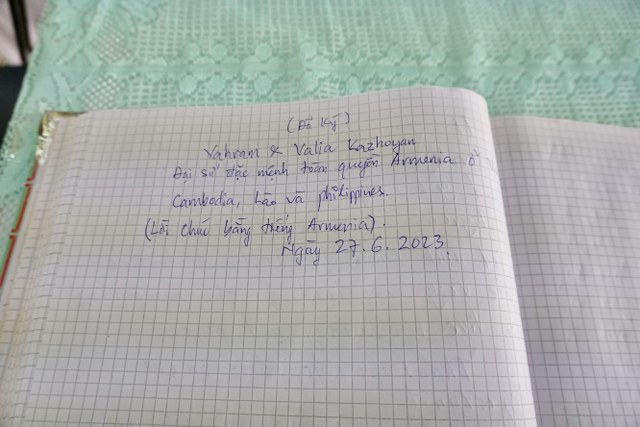 (Đã ký)
Vahram & Valia Kazhoyan
Đại sứ đặc mệnh toàn quyền Armenia ở
Cambodia, Lào và philippines.
(Lời chúc bằng tiếng Armenia).
Ngày 27.6.2023.